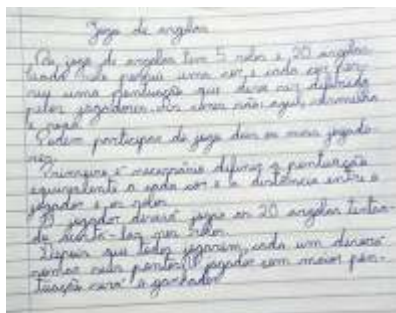 Jogo de argolas
O jogo de argolas tem 5 rolos e 20 argolas
cada rolo possui uma cor, e cada cor for-
nece uma pontuação que deve ser definida
pelos jogadores. As cores são: azul, vermelha
e rosa.
Podem participar do jogo dois ou mais jogado-
res.
Primeiro é necessário definir a pontuação
equivalente a cada cor e a distância entre o
jogador e os rolos.
O jogador deverá jogar as 20 argolas tentan-
do acertá-las nos rolos.
Depois que todos jogarem, cada um deverá
somar seus pontos. O jogador com maior pon-
tuação será o ganhador.